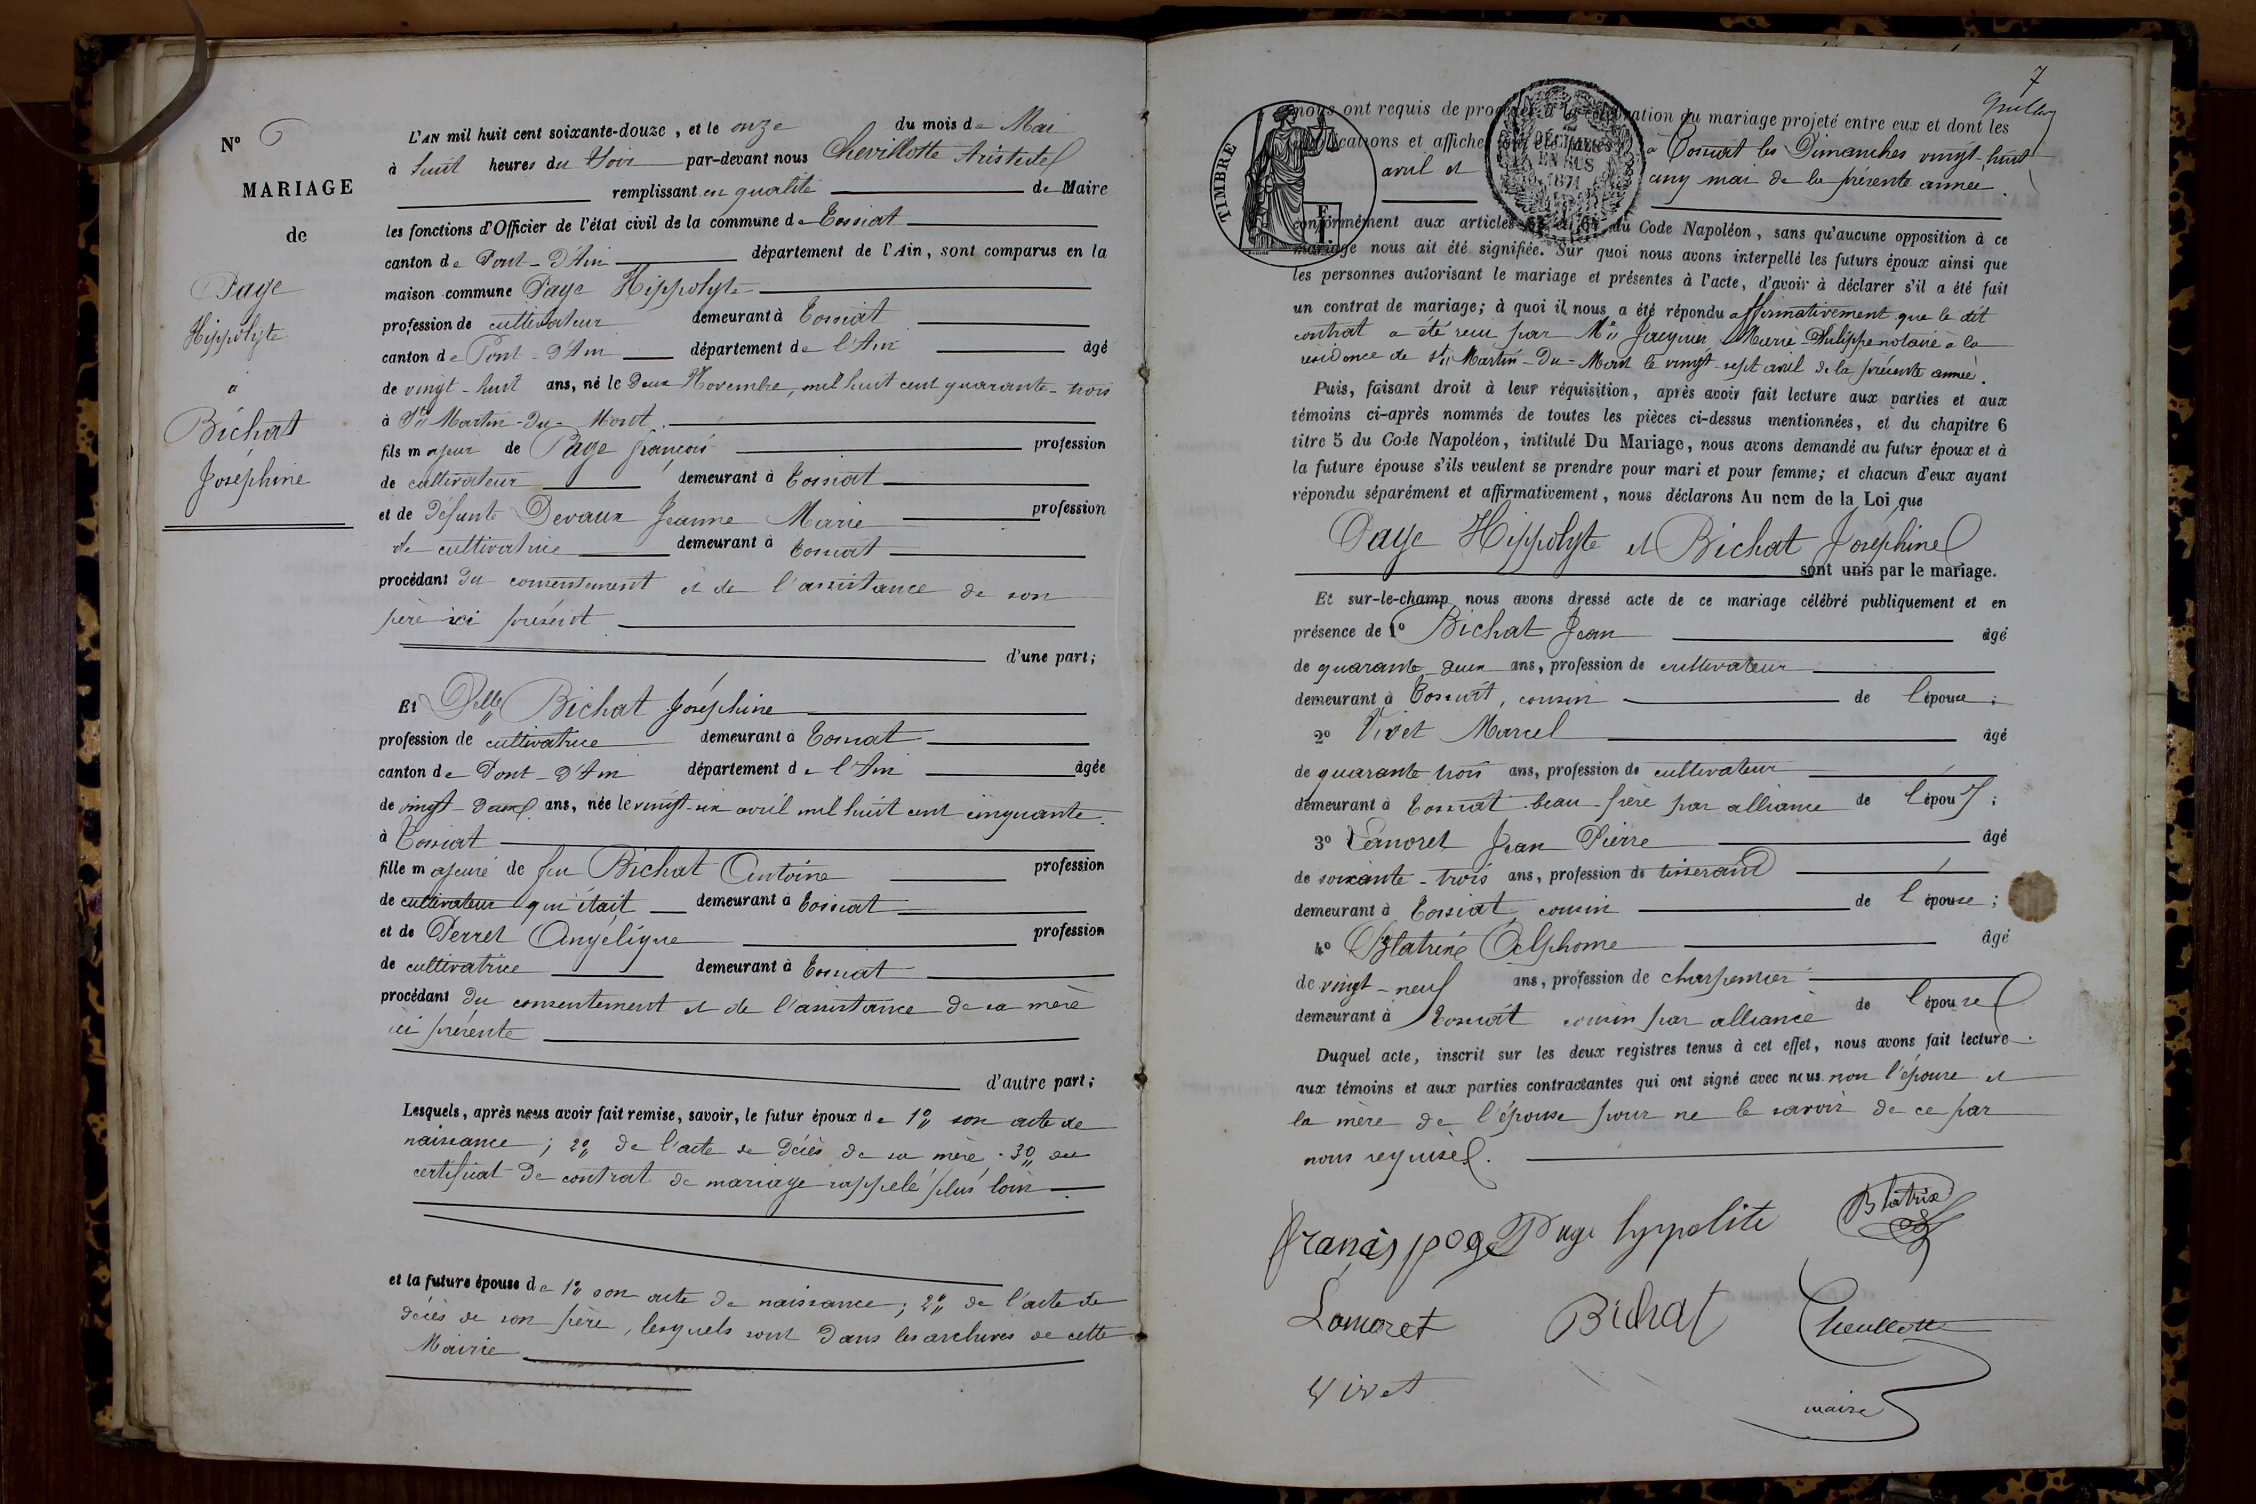 N° 6
MARIAGE
de
Page
Hippolyte
à
Bichat
Joséphine
L'AN mil huit cent soixante-douze, et le onze du mois de Mai
à huit heures du Soir par-devant nous Chevillotte Aristide
remplissant en qualité de Maire
les fonctions d'Officier de l'état civil de la commune de Tossiat
canton de Pont-d'Ain département de l'Ain, sont comparus en la
maison commune Page Hippolyte
profession de cultivateur demeurant à Tossiat
canton de Pont-d'Ain département de l'Ain âgé
de vingt-huit ans, né le Deux Novembre, mil huit cent quarante-trois
à St Martin-Du-Mont.
fils majeur de Page françois profession
de cultivateur demeurant à Tossiat
et de défunte Devaux Jeanne Marie profession
de cultivatrice demeurant à Tossiat
procédant du consentement et de l'assistance de son
père ici présent
d'une part;
Et Delle Bichat Joséphine
profession de cultivatrice demeurant à Tossiat
canton de Pont-d'Ain département de l'Ain âgée
de vingt-deux ans, née le vingt-six avril mil huit cent cinquante
à Tossiat
fille majeure de feu Bichat Antoine profession
de cultivateur qu'il était demeurant à Tossiat
et de Perret Angélique profession
de cultivatrice demeurant à Tossiat
procédant du consentement et de l'assistance de sa mère
ici présente
d'autre part;
Lesquels, après nous avoir fait remise, savoir, le futur époux de 1° son acte de
naissance; 2° de l'acte de décès de sa mère. 3° du
certificat de contrat de mariage rappelé plus loin
et la future épouse de 1° son acte de naissance; 2° de l'acte de
décès de son père, lesquels sont dans les archives de cette
Mairie
7
nous ont requis de procéder à la célébration du mariage projeté entre eux et dont les
publications et affiches ont été faites à Tossiat les Dimanches vingt-huit
avril et cinq mai de la présente année.
TIMBRE
EN SUS
1871
conformément aux articles 63 et 64 du Code Napoléon, sans qu'aucune opposition à ce
mariage nous ait été signifiée. Sur quoi nous avons interpellé les futurs époux ainsi que
les personnes autorisant le mariage et présentes à l'acte, d'avoir à déclarer s'il a été fait
un contrat de mariage; à quoi il nous a été répondu affirmativement que le dit
contrat a été reçu par Me Jacquier Marie-Philippe notaire à la
résidence de St Martin-Du-Mont le vingt-sept avril de la présente année.
Puis, faisant droit à leur réquisition, après avoir fait lecture aux parties et aux
témoins ci-après nommés de toutes les pièces ci-dessus mentionnées, et du chapitre 6
titre 5 du Code Napoléon, intitulé Du Mariage, nous avons demandé au futur époux et à
la future épouse s'ils veulent se prendre pour mari et pour femme; et chacun d'eux ayant
répondu séparément et affirmativement, nous déclarons Au nom de la Loi que
Page Hippolyte et Bichat Joséphine
sont unis par le mariage.
Et sur-le-champ nous avons dressé acte de ce mariage célébré publiquement et en
présence de 1° Bichat Jean âgé
de quarante-deux ans, profession de cultivateur
demeurant à Tossiat, cousin de l'épouse;
2° Vivet Marcel âgé
de quarante trois ans, profession de cultivateur
demeurant à Tossiat beau-frère par alliance de l'époux;
3° Lamoret Jean Pierre âgé
de soixante-trois ans, profession de tisserand
demeurant à Tossiat, cousin de l'épouse;
4° Blatrix Alphonse âgé
de vingt-neuf ans, profession de charpentier
demeurant à Tossiat cousin par alliance de l'épouse
Duquel acte, inscrit sur les deux registres tenus à cet effet, nous avons fait lecture
aux témoins et aux parties contractantes qui ont signé avec nous non l'épouse et
la mère de l'épouse pour ne le savoir de ce par
nous requises.
françois page Page hyppolite Blatrix
Lamoret Bichat Chevillotte
Vivet
maire